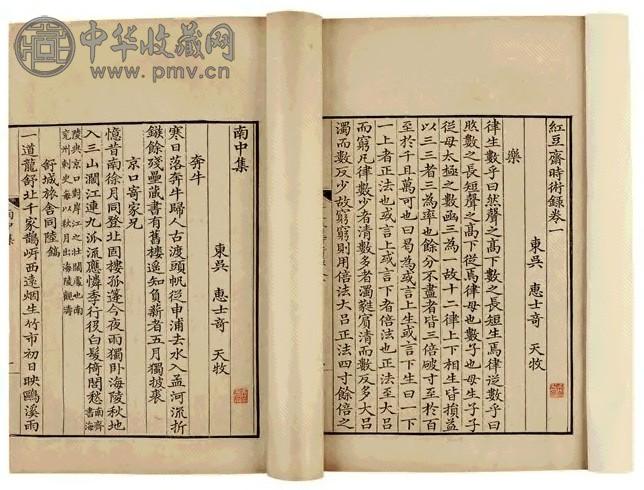 中华收藏网
www.pmv.cn
紅豆齋時術錄卷一
東吳 惠士奇 天牧
樂
律生數乎曰然聲之高下數之長短生焉律逆數乎曰
然數之長短聲之高下從焉律母也數子也母生子子
從母太極之數函三為一故十二律上下相生皆損益
以三三者三為率也餘分不盡者皆三倍破寸至於百
至於千且萬可也曰曷為或言上生或言下生曰一下
一上者正法也或言上或言下者倍法也正法至大呂
而窮凡律數少者清數多者濁蕤賓清而數反多大呂
濁而數反少故窮窮則用倍法大呂正法四寸餘倍之
南中集
東吳 惠士奇 天牧
奔牛
寒日落奔牛歸人古渡頭帆從申浦去水入孟河流折
鏃餘殘壘藏書有舊樓遥知負薪者五月獨披裘
京口寄家兄
憶昔南徐月同登北固樓孤蓬今夜雨獨卧海陵秋地
入三山濶江連九派流應憐季行役白髮倚閭愁南齊書海
陵與京口對岸江之壮闊處也南
兗州刺史每以秋月出海陵觀濤
舒城旅舍同陸鎬
一道龍舒北千家鵲岸西遠烟生竹市初日映鷗溪雨
南中集